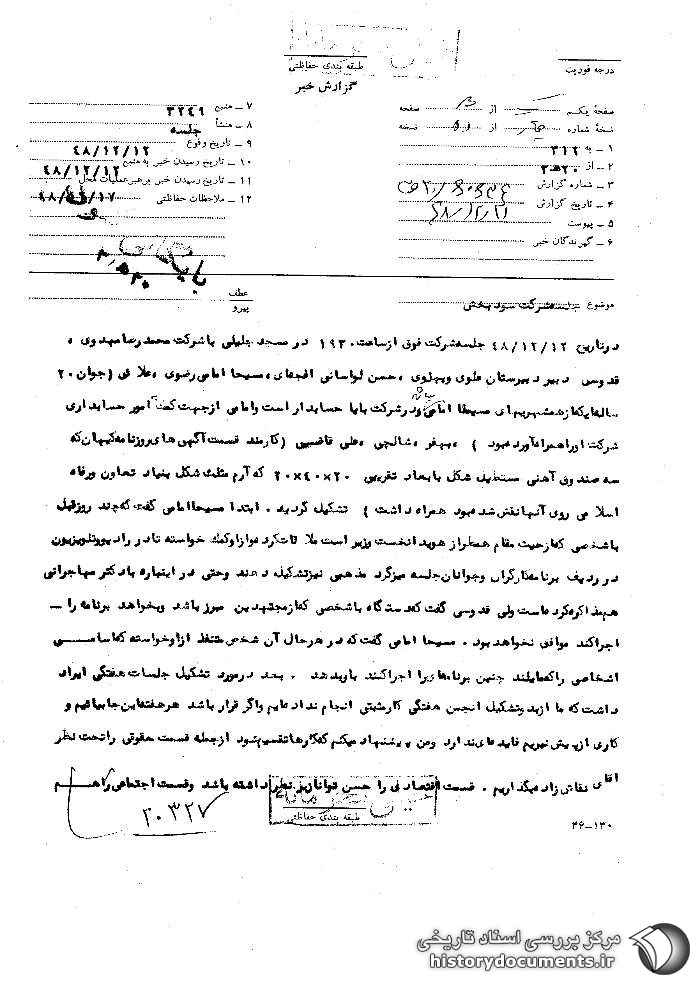 طبقه بندی حفاظتی
گزارش خبر
درجه فوریت
صفحهٔ یکم از صفحه
نسخهٔ شماره از نسخه
۱ ــ به ۳۱۲
۲ ــ از ۲۰ه۳
۳ ــ شماره گزارش
۴ ــ تاریخ گزارش
۵ ــ پیوست
۶ ــ گیرندگان خبر
۷ ــ منبع ۳۲۴۹
۸ ــ منشأ جلسه
۹ ــ تاریخ وقوع ۴۸/۱۲/۱۲
۱۰ ــ تاریخ رسیدن خبر به منبع ۴۸/۱۲/۱۲
۱۱ ــ تاریخ رسیدن خبر برهبر عملیات محل
۱۲ ــ ملاحظات حفاظتی
موضوع جلسه شرکت سود بخش
عطف
پیرو
درتاریخ ۴۸/۱۲/۱۲ جلسه شرکت فوق ازساعت ۱۹۳۰ در مسجد جلیلی با شرکت محمدرضا مهدوی ،
قدوسی دبیر دبیرستان علوی وپهلوی ، حسن لواسانی ، مسیحا امامی رضوی ، علاقی (جوان ۲۰
ساله ایکه از همشهریهای مسیحا امامی ودر شرکت بابا حسابدار است وامامی ازجهت کمک امور حسابداری
شرکت اوراهمراه آورده بود ) ، ، شالچی ، علی قاضیی (کارمند قسمت آگهی های روزنامه کیهان که
سه صندوق آهنی مستطیل شکل بابعاد تقریبی ۲۰×۴۰×۲۰ که آرم مثلث شکل بنیاد تعاون ورفاه
اسلامی روی آنها نقش شده بود همراه داشت ) تشکیل گردید . ابتدا مسیحا امامی گفت که چند روز قبل
باشخصی که از حیث مقام از هویدا نخست وزیر است ملاقات کرده واز او کمک خواسته تا در رادیو وتلویزیون
در ردیف برنامه کارگران وجوانان جلسه میزگرد مذهبی نیز تشکیل دهند وحتی در اینباره بادکتر مهاجرانی
هم مذاکره کرده است ولی قدوسی گفت که دستگاه باشخصی که از مجتهدین مبرز باشد وبخواهد برنامه را ــ
اجراکند موافق نخواهد بود . مسیحا امامی گفت که در هر حال آن شخص متنفذ از او خواسته که اسامی
اشخاصی را که مایلند چنین برنامه ای را اجراکنند باو بدهد . بعد درمورد تشکیل جلسات هفتگی ایراد
داشت که ما از بدو تشکیل انجمن هفتگی کار مثبتی انجام نداده ایم واگر قرار باشد هر هفته این جا بیائیم و
کاری از پیش نبریم فایده ای ندارد ومن پیشنهاد میکنم که کارها تقسیم شود از جمله قسمت حقوقی را تحت نظر
آقای نقاش زاده میگذاریم . قسمت اقتصادی را حسن زیر نظر داشته باشد وقسمت اجتماعی را هم
طبقه بندی حفاظتی
۲۰۳۲۷
۳۶-۱۳۰
مرکز بررسی اسناد تاریخی
historydocuments.ir